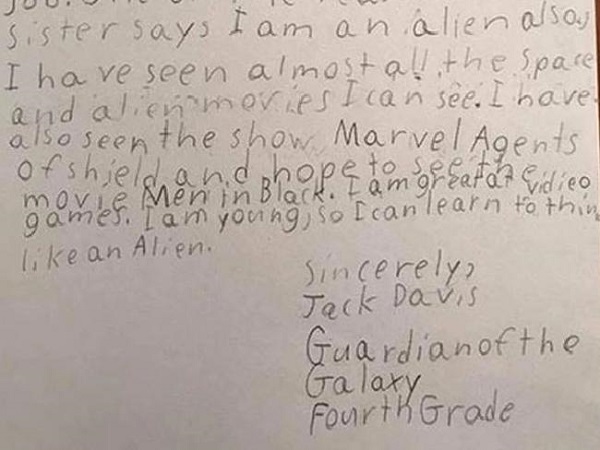 sister says I am an alien also,
I have seen almost all the space
and alien movies I can see. I have
also seen the show Marvel Agents
of shield and hope to see the
movie Men in Black. I am great at vidieo
games. I am young, so I can learn to thin
like an Alien.
Sincerely,
Jack Davis
Guardian of the
Galaxy
Fourth Grade